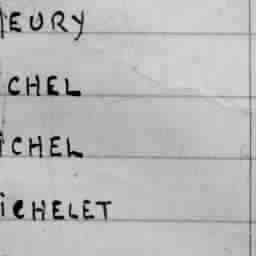 EURY
CHEL
iCHEL
iCHELET